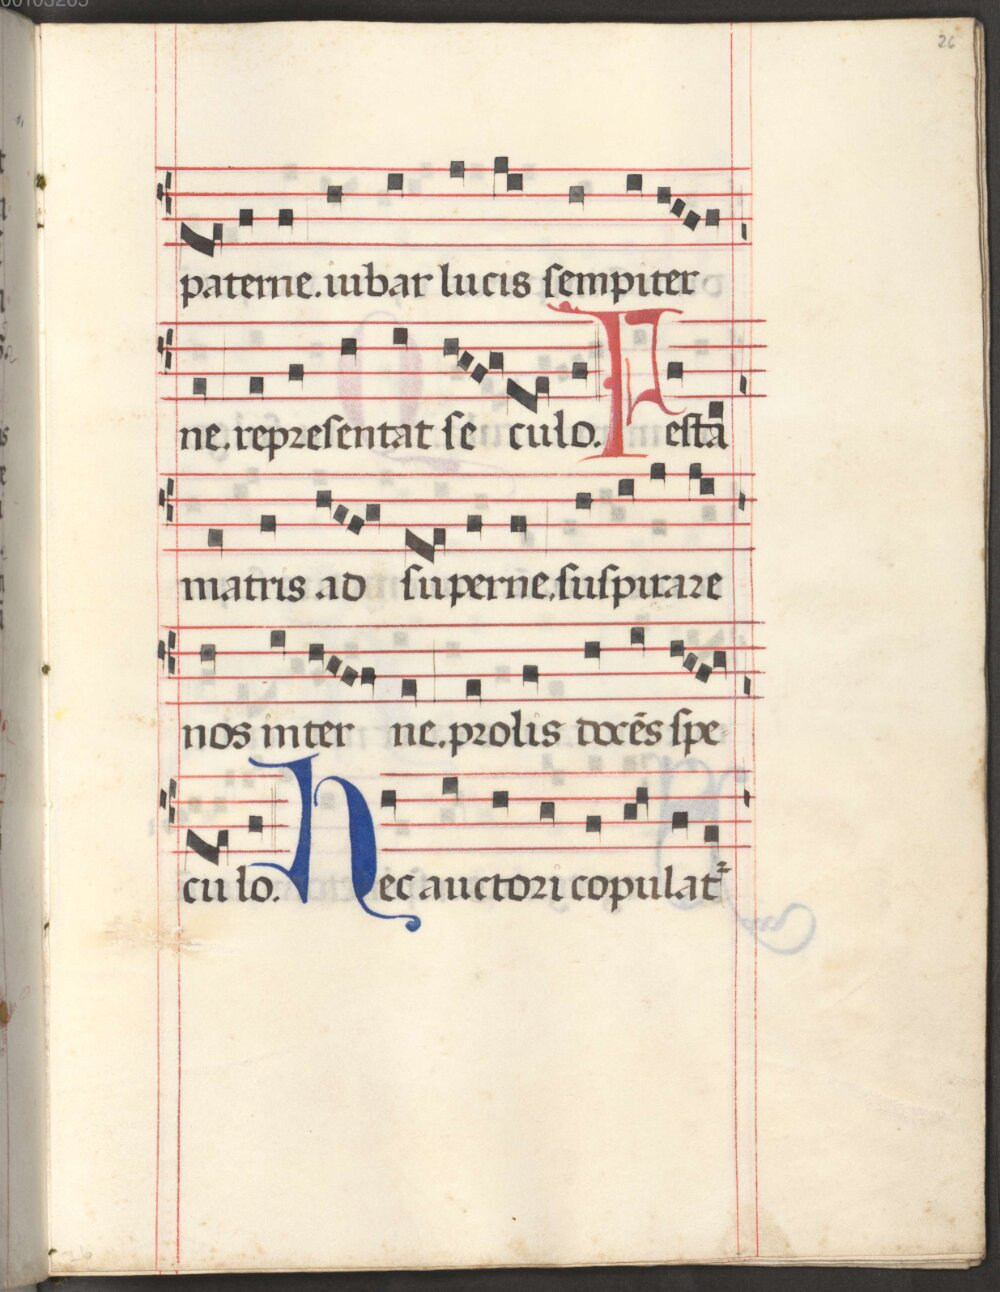 26
paterne. iubar lucis sempiter
ne. representat se culo. Festa
matris ad superne. suspirare
nos inter ne. prolis docēs spe
culo. Hec auctori copulat᷑